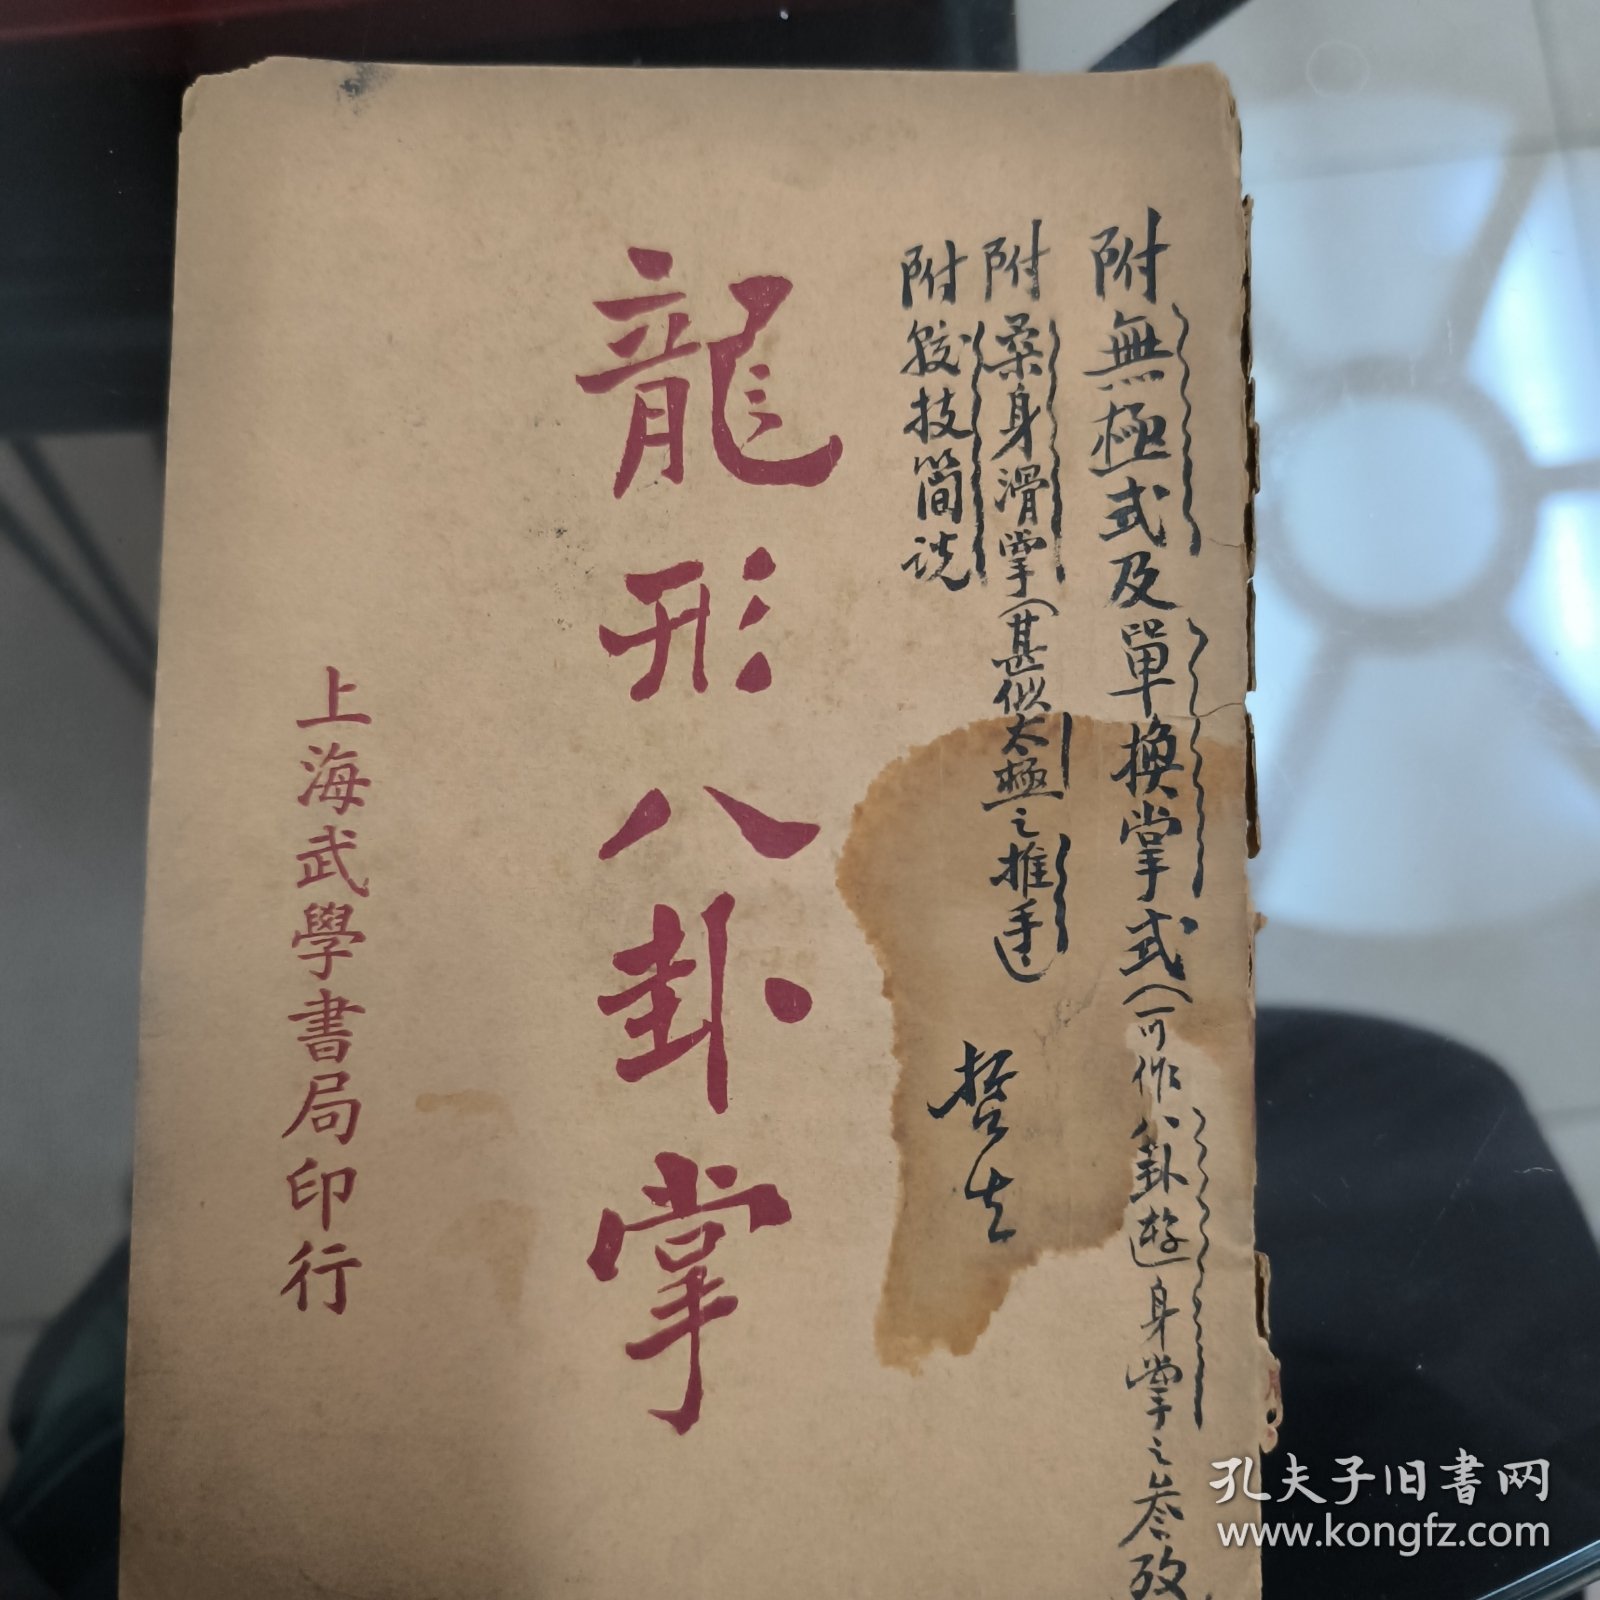 附無極式及單換掌式(可作八卦遊身掌之叅攷
附柔身滑掌(甚似太極之推手)
附競技簡說
龍形八卦掌
上海武學書局印行
孔夫子旧书网
www.kongfz.com